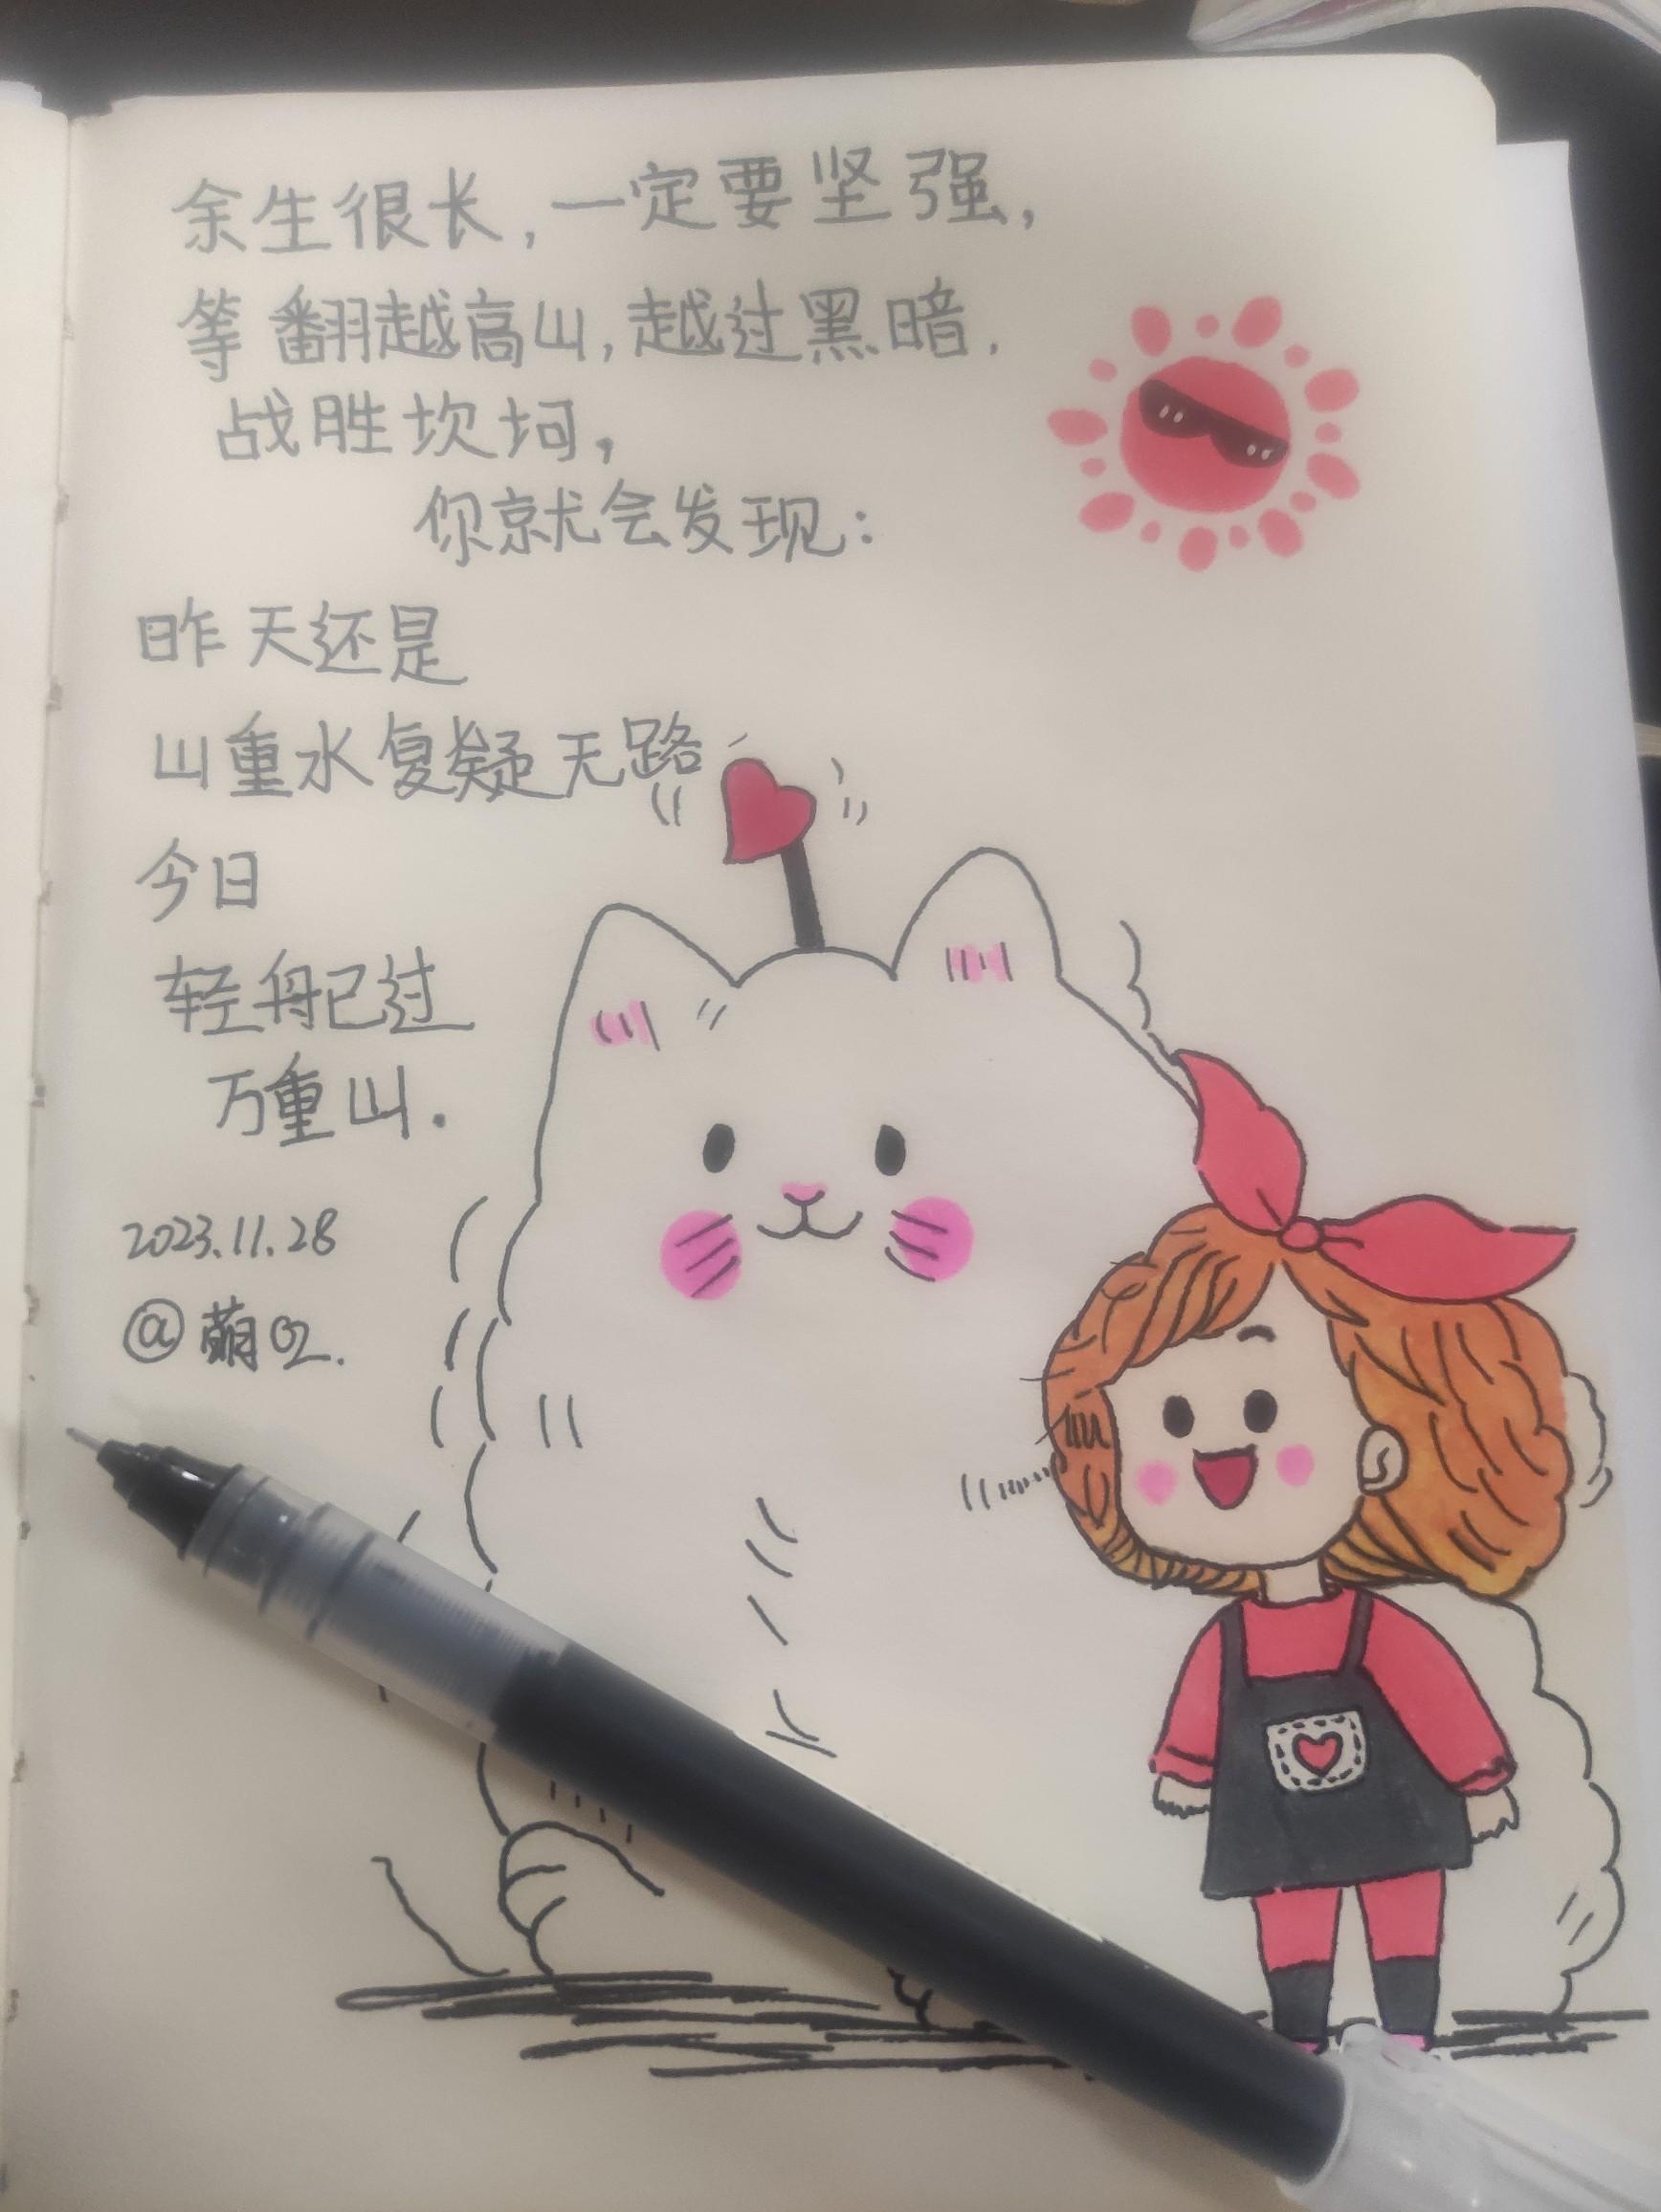 余生很长，一定要坚强，
等翻越高山，越过黑暗.
战胜坎坷，
你就会发现：
昨天还是
山重水复疑无路
今日
轻舟已过
万重山.
2023.11.28
@萌02.